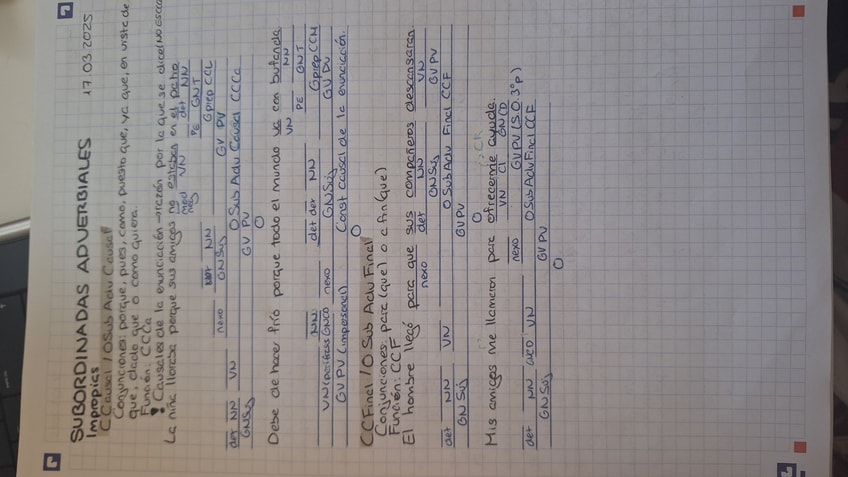 SUBORDINADAS ADVERBIALES 17.03.2025
Impropias
CCausal / O Sub Adv Causal
Conjunciones: porque, pues, como, puesto que, ya que, en vista de
que, dado que o como quiera.
Función: CCCa
Causales de la enunciación → razón por la que se dice
La niña lloraba porque sus amigos no estaban en el patio
mod neg VN det NN
PE GNT
nexo det NN GPrep CCL
GNSuj GV PV
det NN VN O Sub Adv Causal CCCa
GNSuj GV PV
O
Debe de hacer frío porque todo el mundo va con bufanda
VN NN
PE GNT
NN det det NN GPrep CCM
VN GNCD nexo GNSuj GV PV
GV PV (impersonal) Const causal de la enunciación
O
CCFinal / O Sub Adv Final
Conjunciones: para (que) o a fin (que)
Función: CCF
El hombre llegó para que sus compañeros descansaran.
nexo det NN VN
GNSuj GV PV
det NN VN O Sub Adv Final CCF
GNSuj GV PV
O
Mis amigos me llamaron para ofrecerme ayuda.
VN CI GNCD
nexo GV PV (S.O 3ªp)
det NN VN O Sub Adv Final CCF
GNSuj GV PV
O